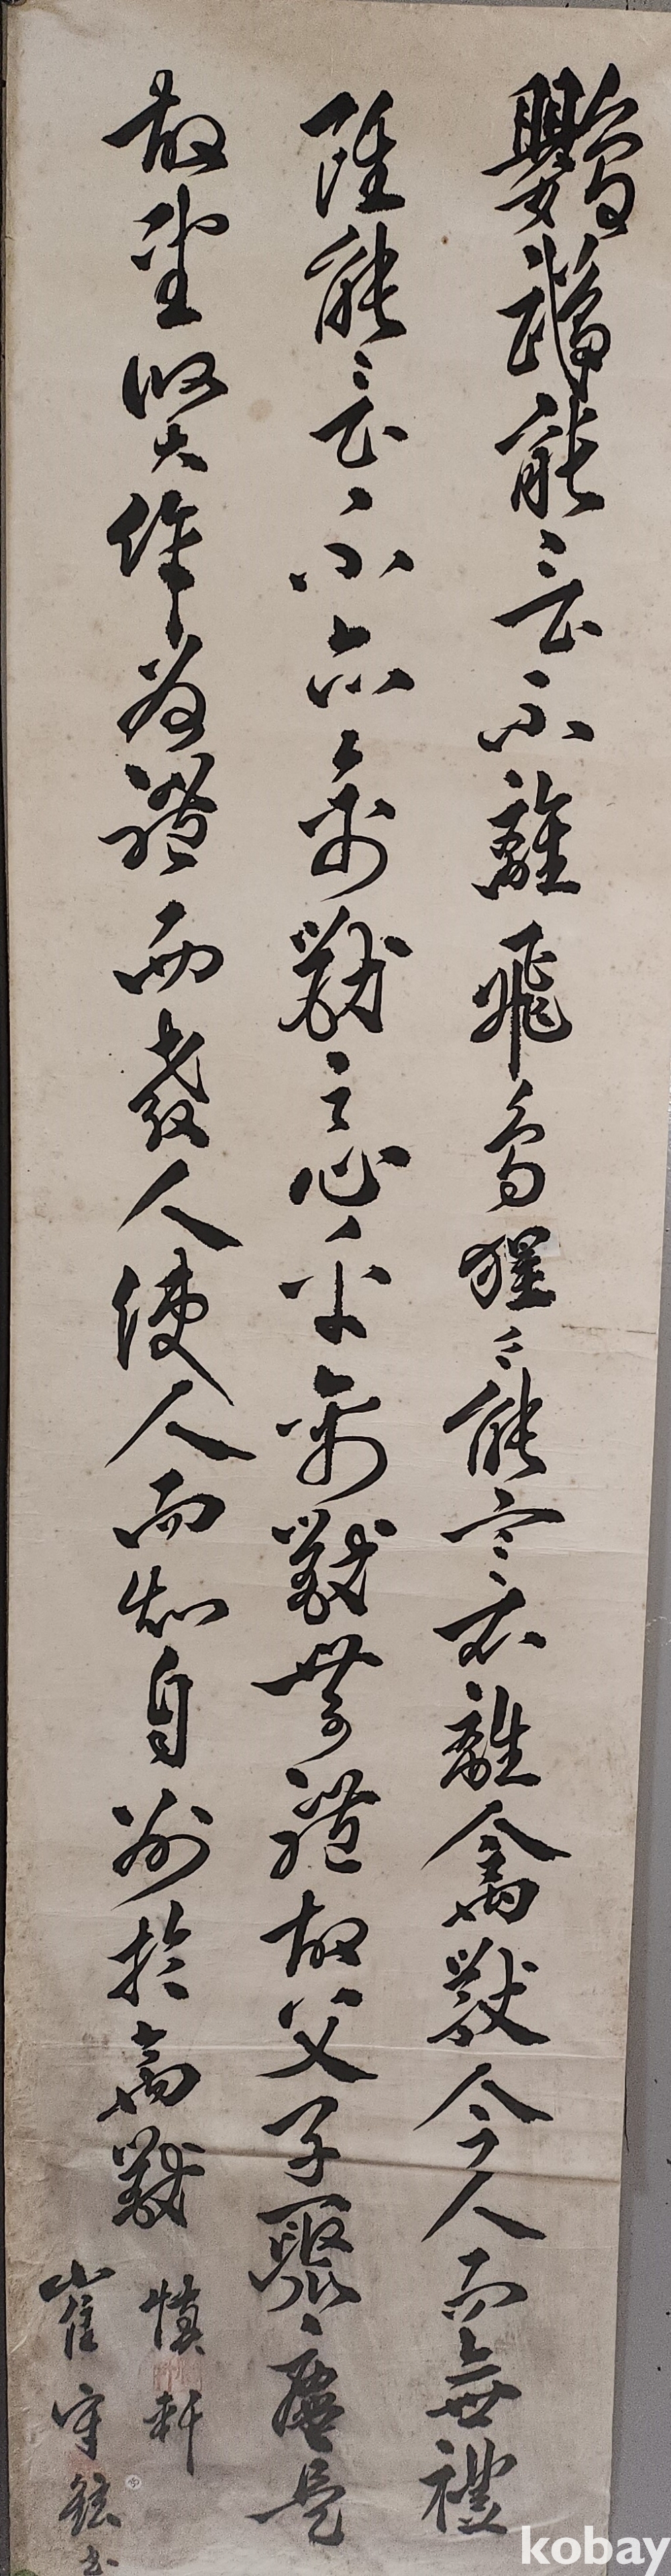 鸚鵡能言不離飛鳥猩〻能言不離禽獸今人而無禮
雖能言不亦禽獸之心乎禽獸無禮故父子聚麀是
故聖賢作為禮而教人使人而知自別於禽獸
慎軒
崔守鉉書
kobay